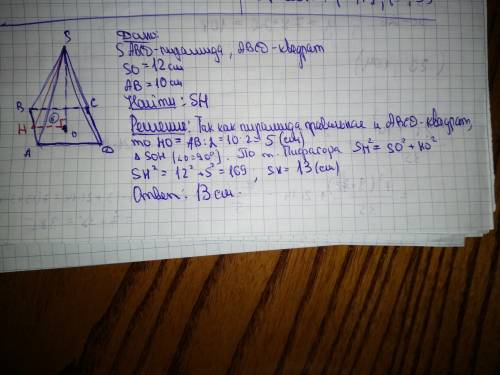 Дано:
SABCD-пирамида, ABCD-квадрат
SO=12см
AB=10см
Найти: SH
Решение: Так как пирамида правильная и ABCD-квадрат,
то HO=AB:2=10:2=5(см)
Δ SOH [∠O=90°]. По т. Пифагора SH²=SO²+HO²
SH²=12²+5²=169, SH=13(см)
Ответ: 13 см.
S
B
C
H
O
A
D